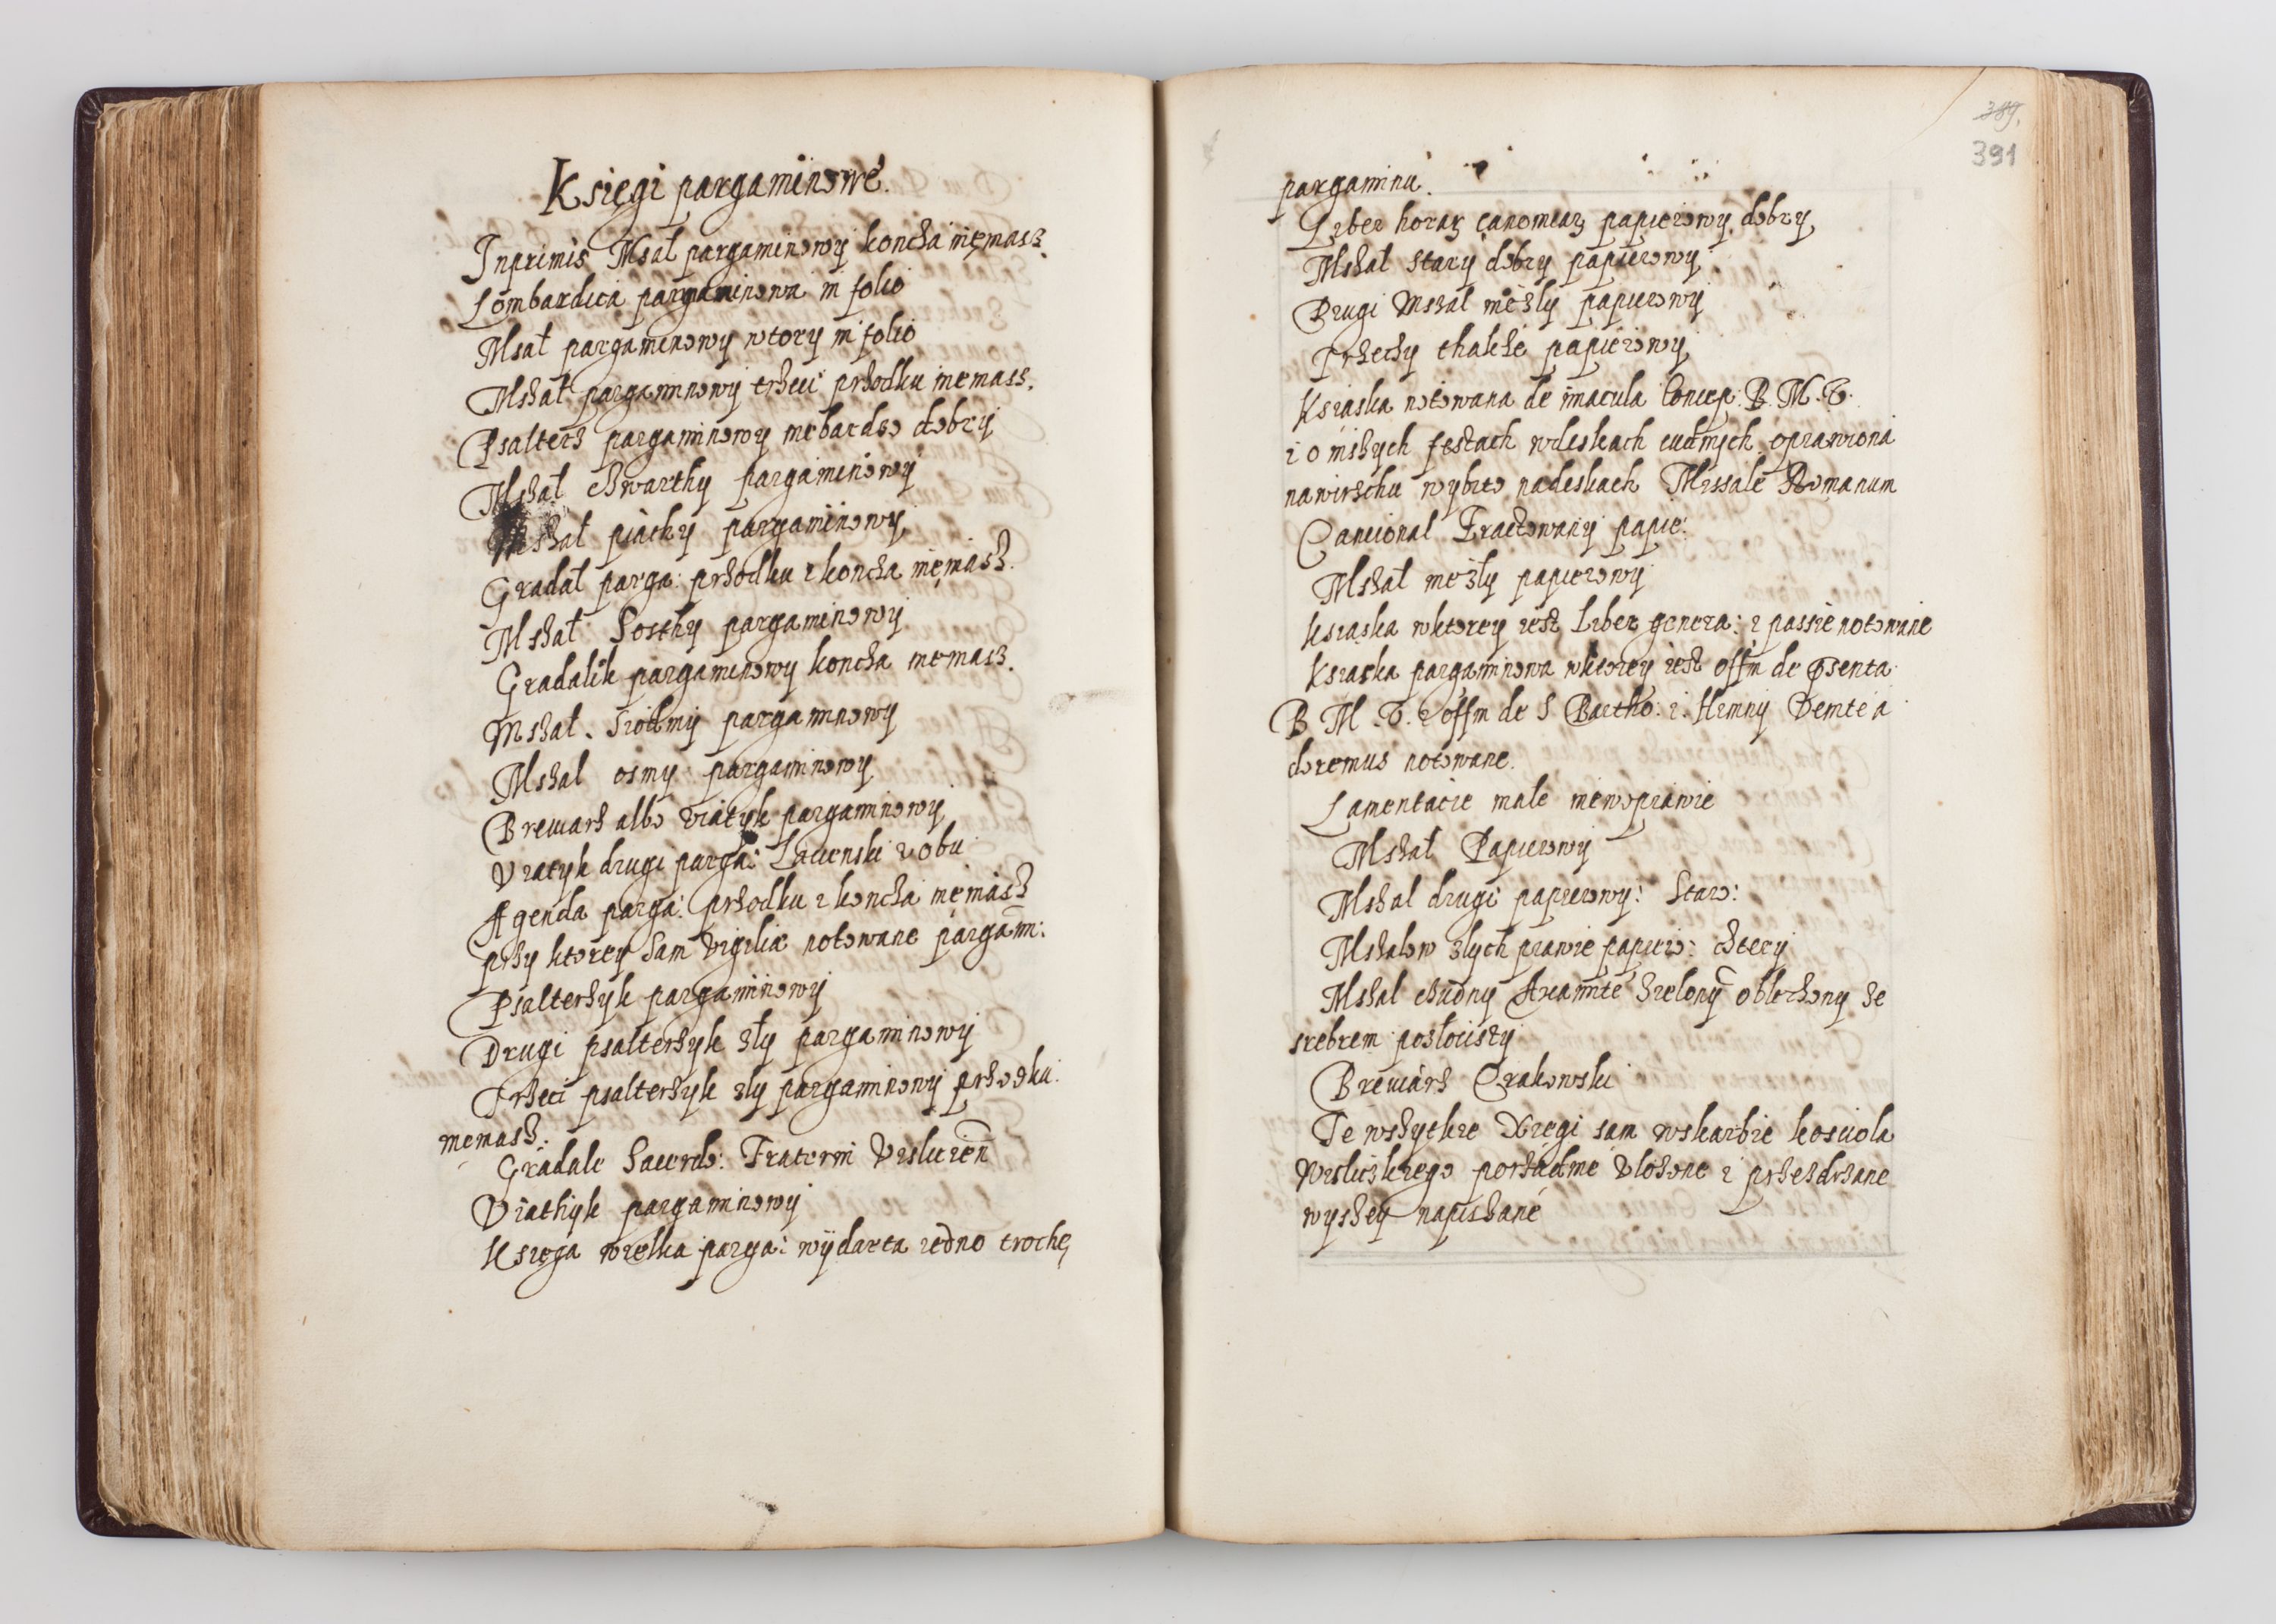 Księgi pargaminowe.
Inprimis Msał pargaminowy koncża niemasz.
Lombardica pargaminowa in folio
Msał pargaminowy wtory in folio
Mszał pargaminowy trzeci przodku niemass.
Psalterz pargaminowy niebardzo dobry
Mszał czwarthy pargaminowy
Mszał piąthy pargaminowy
Gradał parga: przodku i koncza niemasz.
Mszał Sosthy pargaminowy
Gradalik pargaminowy koncza niemasz.
Mszał. Siodmy pargaminowy
Mszal osmy pargaminowy
Breuiarz albo viatyk pargaminowy
Viatyk drugi parga:
Agenda parga: przodku i koncża niemász
przy ktorey sam vigiliæ notowane pargamī:
Psalterzyk pargaminowy
Drugi psalterzyk zły pargaminowy
Trzeci psalterzyk zly pargaminowy przodku
niemasz.
Gradale Sacerdo: Fraterni Vislicień
Viathyk pargaminowy
Księga wielka parga: wydarta iedno trochę
389.
391
pargaminu.
Liber horaꝝ canonicaꝝ papierowy dobry
Mszał stary dobry papierowy
Drugi Mszał niezly papierowy
Trzechy thakże papierowy
Ksiąska notowana de imacula Concep: B. M. V.
i o inszych festach wdeskach cudnych oprawiona
nawirschu wybito nadeskach Missale Romanum
Cancional Fractowany papie:
Mszał niezly papierowy
Ksiąska wktorey iest Liber genera: i passie notowane
Ksiąska pargaminowa wktorey iest offm de Psenta
B. M. V. i offm de S Bartho: i. Himny Venite a
doremus notowane.
Lamentacie małe niewoprawie
Mszał Papierowy
Mszal drugi papierowy: Staro:
Mszalow zlych prawie papiero: cztery
Mszal chudny Axamite Zielony oblozony ze
srebrem poslocisty
Breuiarz Crakowski
Te wszythkie Xięgi sam wskarbie kosciola
Wislickiego porządnie vlozone i przezdrzane
wyszey napiszane